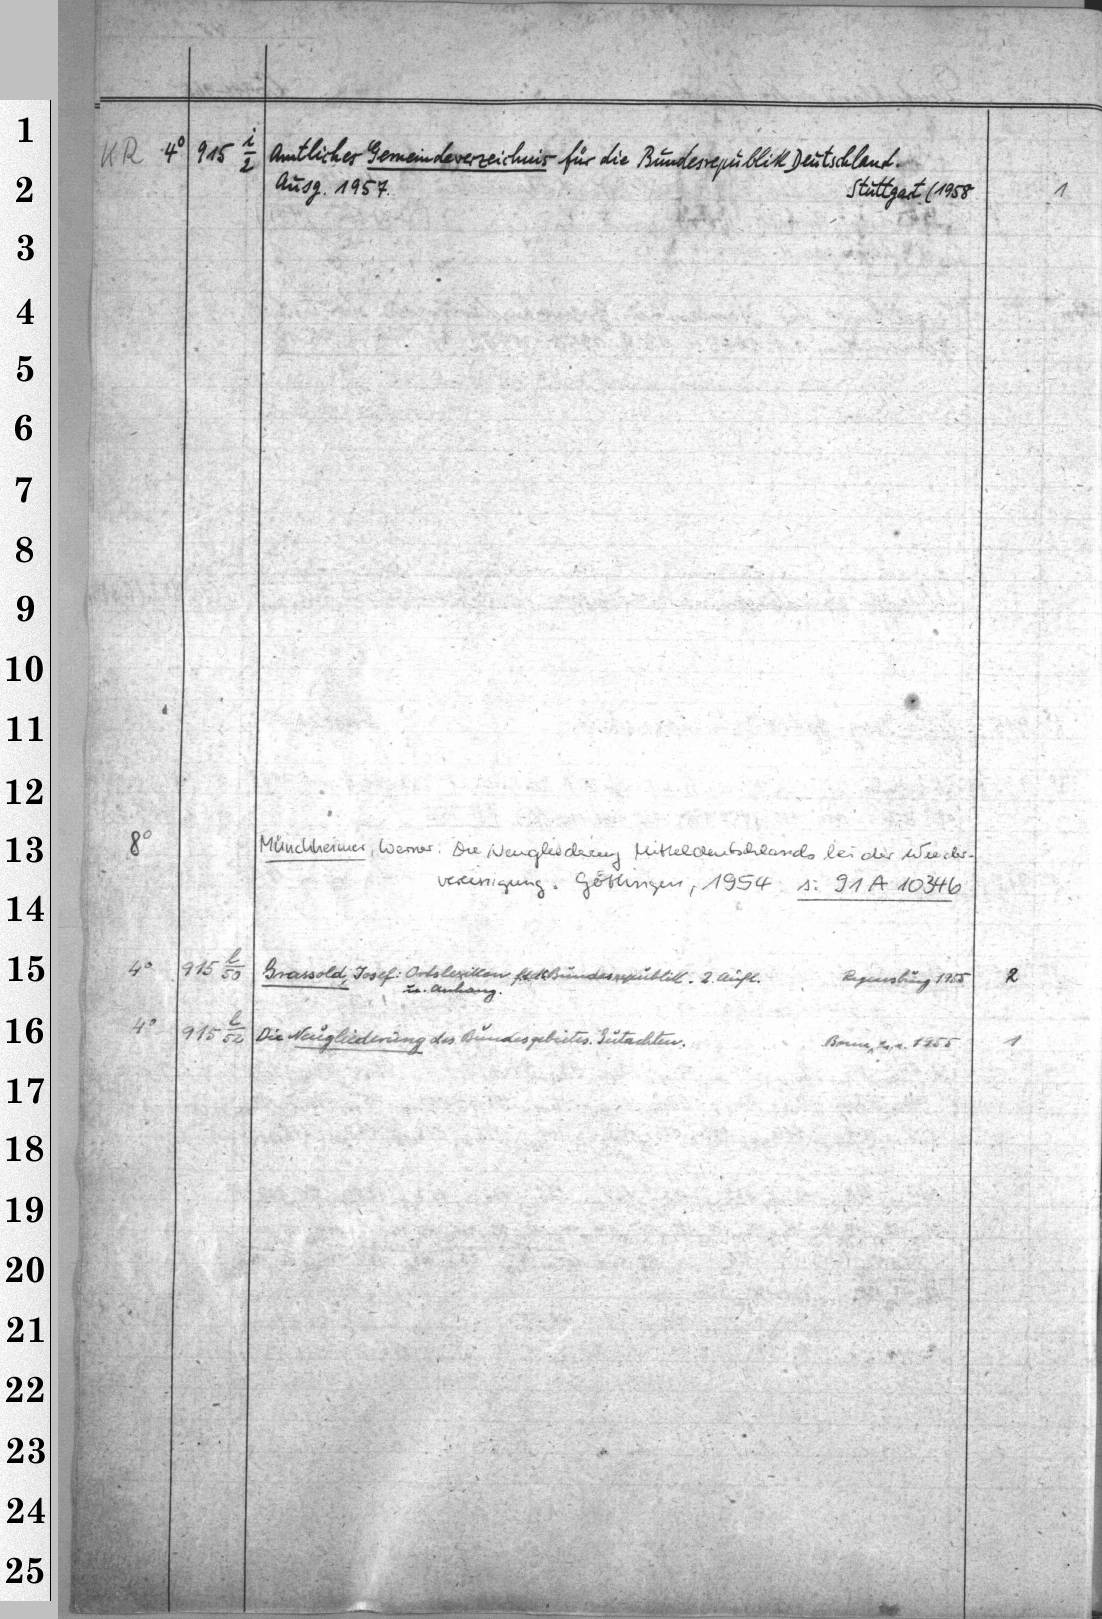 1
KR 4° 915 i/2 Amtliches Gemeindeverzeichnis für die Bundesrepublik Deutschland.
2
Ausg. 1957. Stuttgart (1958 1
3
4
5
6
7
8
9
10
11
12
13
8° Münchheimer, Werner: Die Neugliederung Mitteldeutschlands bei der Wieder-
vereinigung. Göttingen, 1954 s: 91 A 10346
14
15
4° 915 l/50 Grassold, Josef: Ortslexikon Bundesrepublik. 2. Aufl. Regensburg 1955 2
u. Anhang.
16
4° 915 l/52 Die Neugliederung des Bundesgebietes. Gutachten. Bonn 1955 1
17
18
19
20
21
22
23
24
25